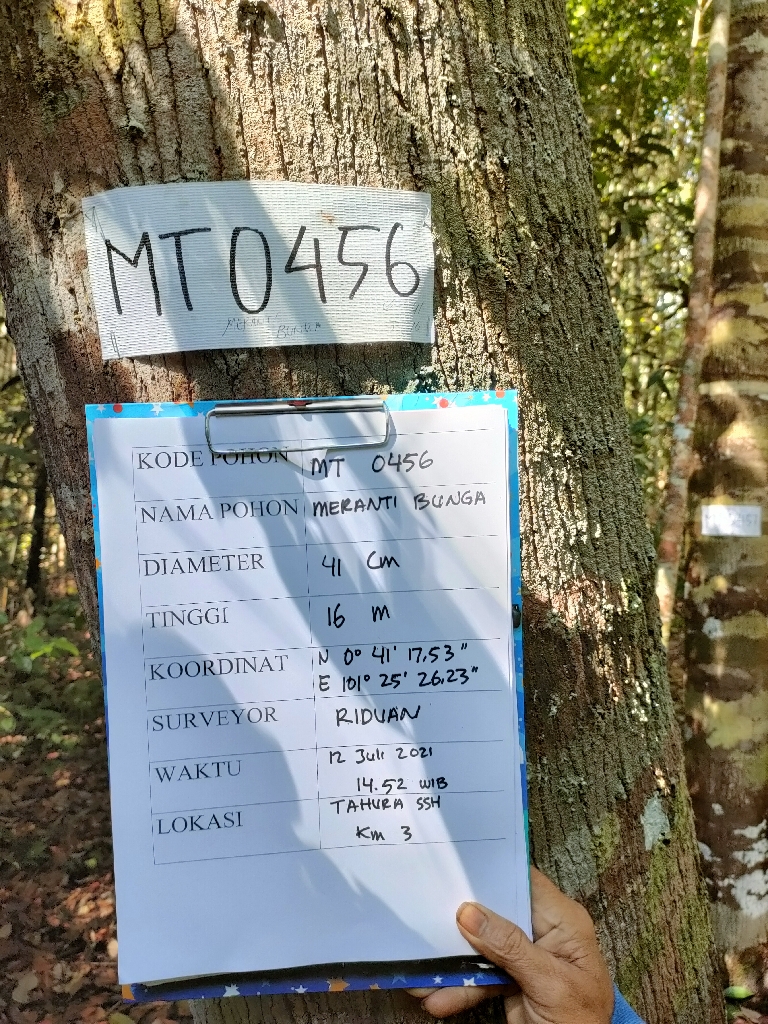 MT0456
MERANTI
BUNGA
KODE POHON MT 0456
NAMA POHON MERANTI BUNGA
DIAMETER 41 Cm
TINGGI 16 m
KOORDINAT N 0° 41' 17.53"
E 101° 25' 26.23"
SURVEYOR RIDUAN
WAKTU 12 Juli 2021
14.52 WIB
LOKASI TAHURA SSH
Km 3